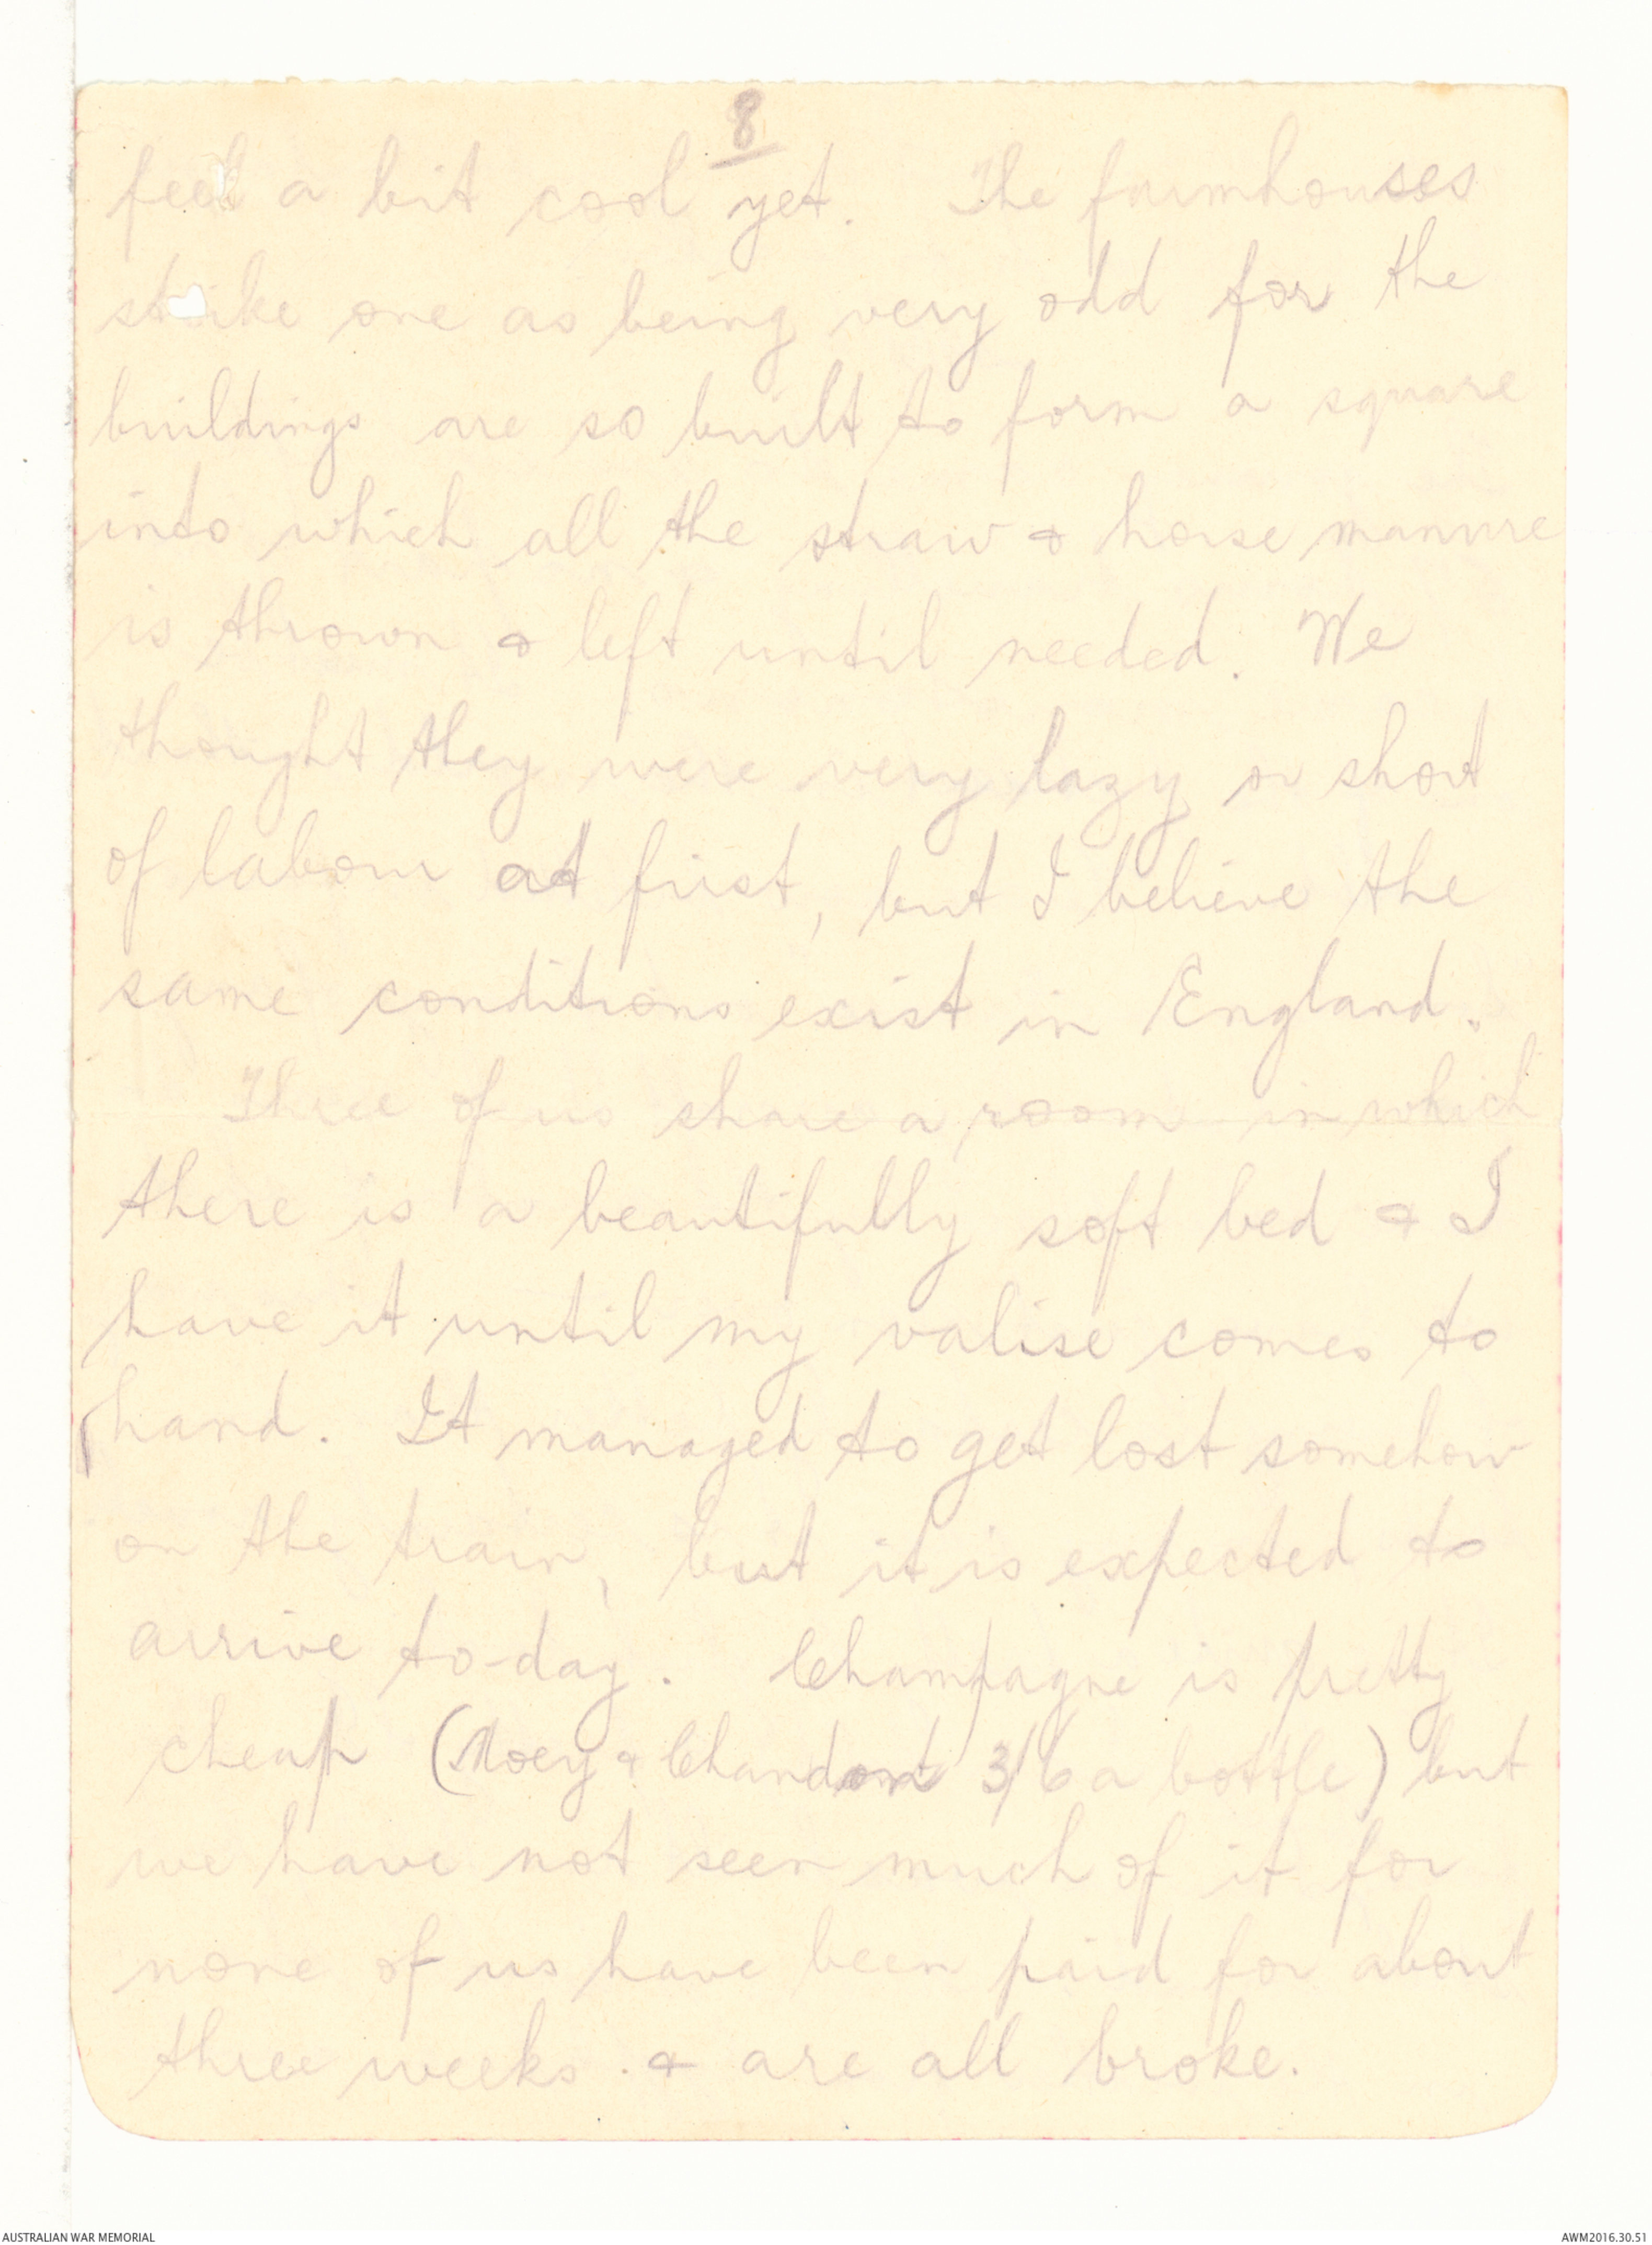 8
feel a bit cool yet. The farmhouses
strike one as being very odd for the
buildings are so built to form a square
into which all the straw & horse manure
is thrown & left until needed. We
thought they were very lazy or short
of labour at first, but I believe the
same conditions exist in England.
Three of us share a room in which
there is a beautifully soft bed & I
have it until my valise comes to
hand. It managed to get lost somehow
on the train, but it is expected to
arrive to-day. Champagne is pretty
cheap (Moey & Chandont 3/6 a bottle) but
we have not seen much of it for
none of us have been paid for about
three weeks. & are all broke.
AUSTRALIAN WAR MEMORIAL
AWM2016.30.51